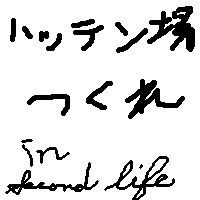 ハッテン場
つくれ
in
second life